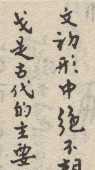 文初形中绝不
戈是古代的主要